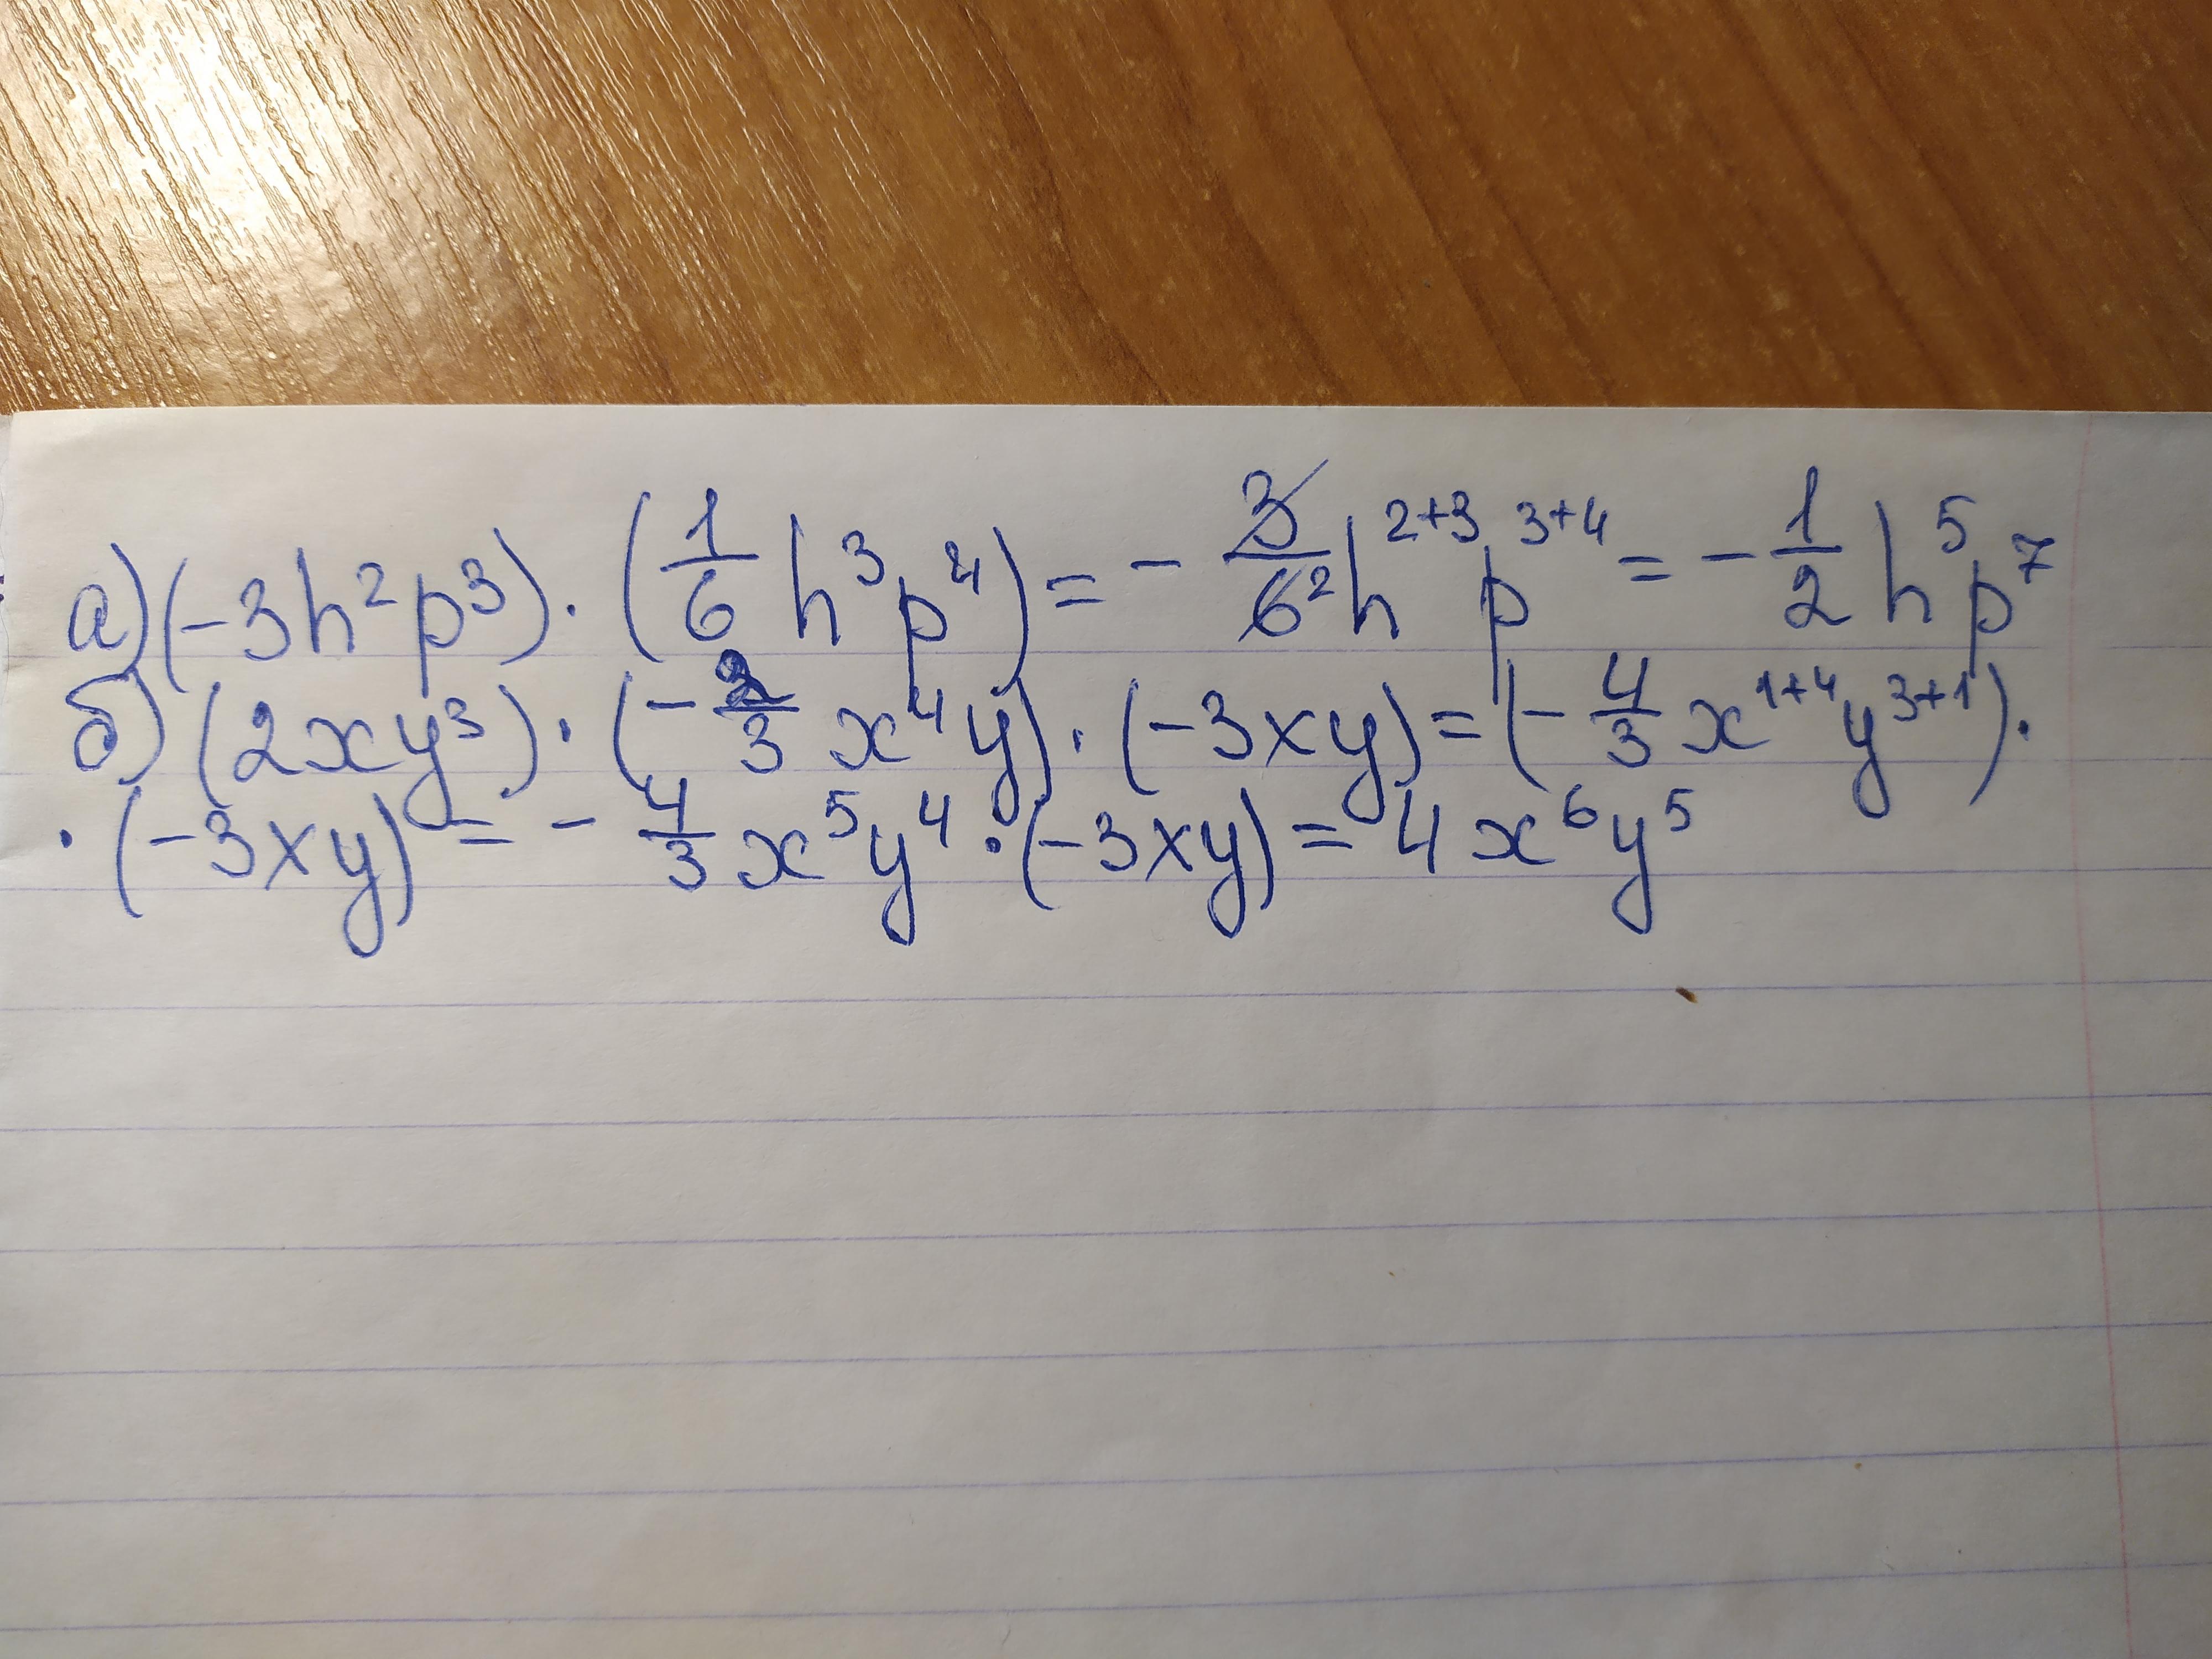 а) (-3h²p³) · (1/6 h³p⁴) = - 3/6² h²⁺³p³⁺⁴ = - 1/2 h⁵p⁷
б) (2xy³) · (- 2/3 x⁴y) · (-3xy) = (- 4/3 x¹⁺⁴y³⁺¹) ·
· (-3xy) = - 4/3 x⁵y⁴ · (-3xy) = 4x⁶y⁵